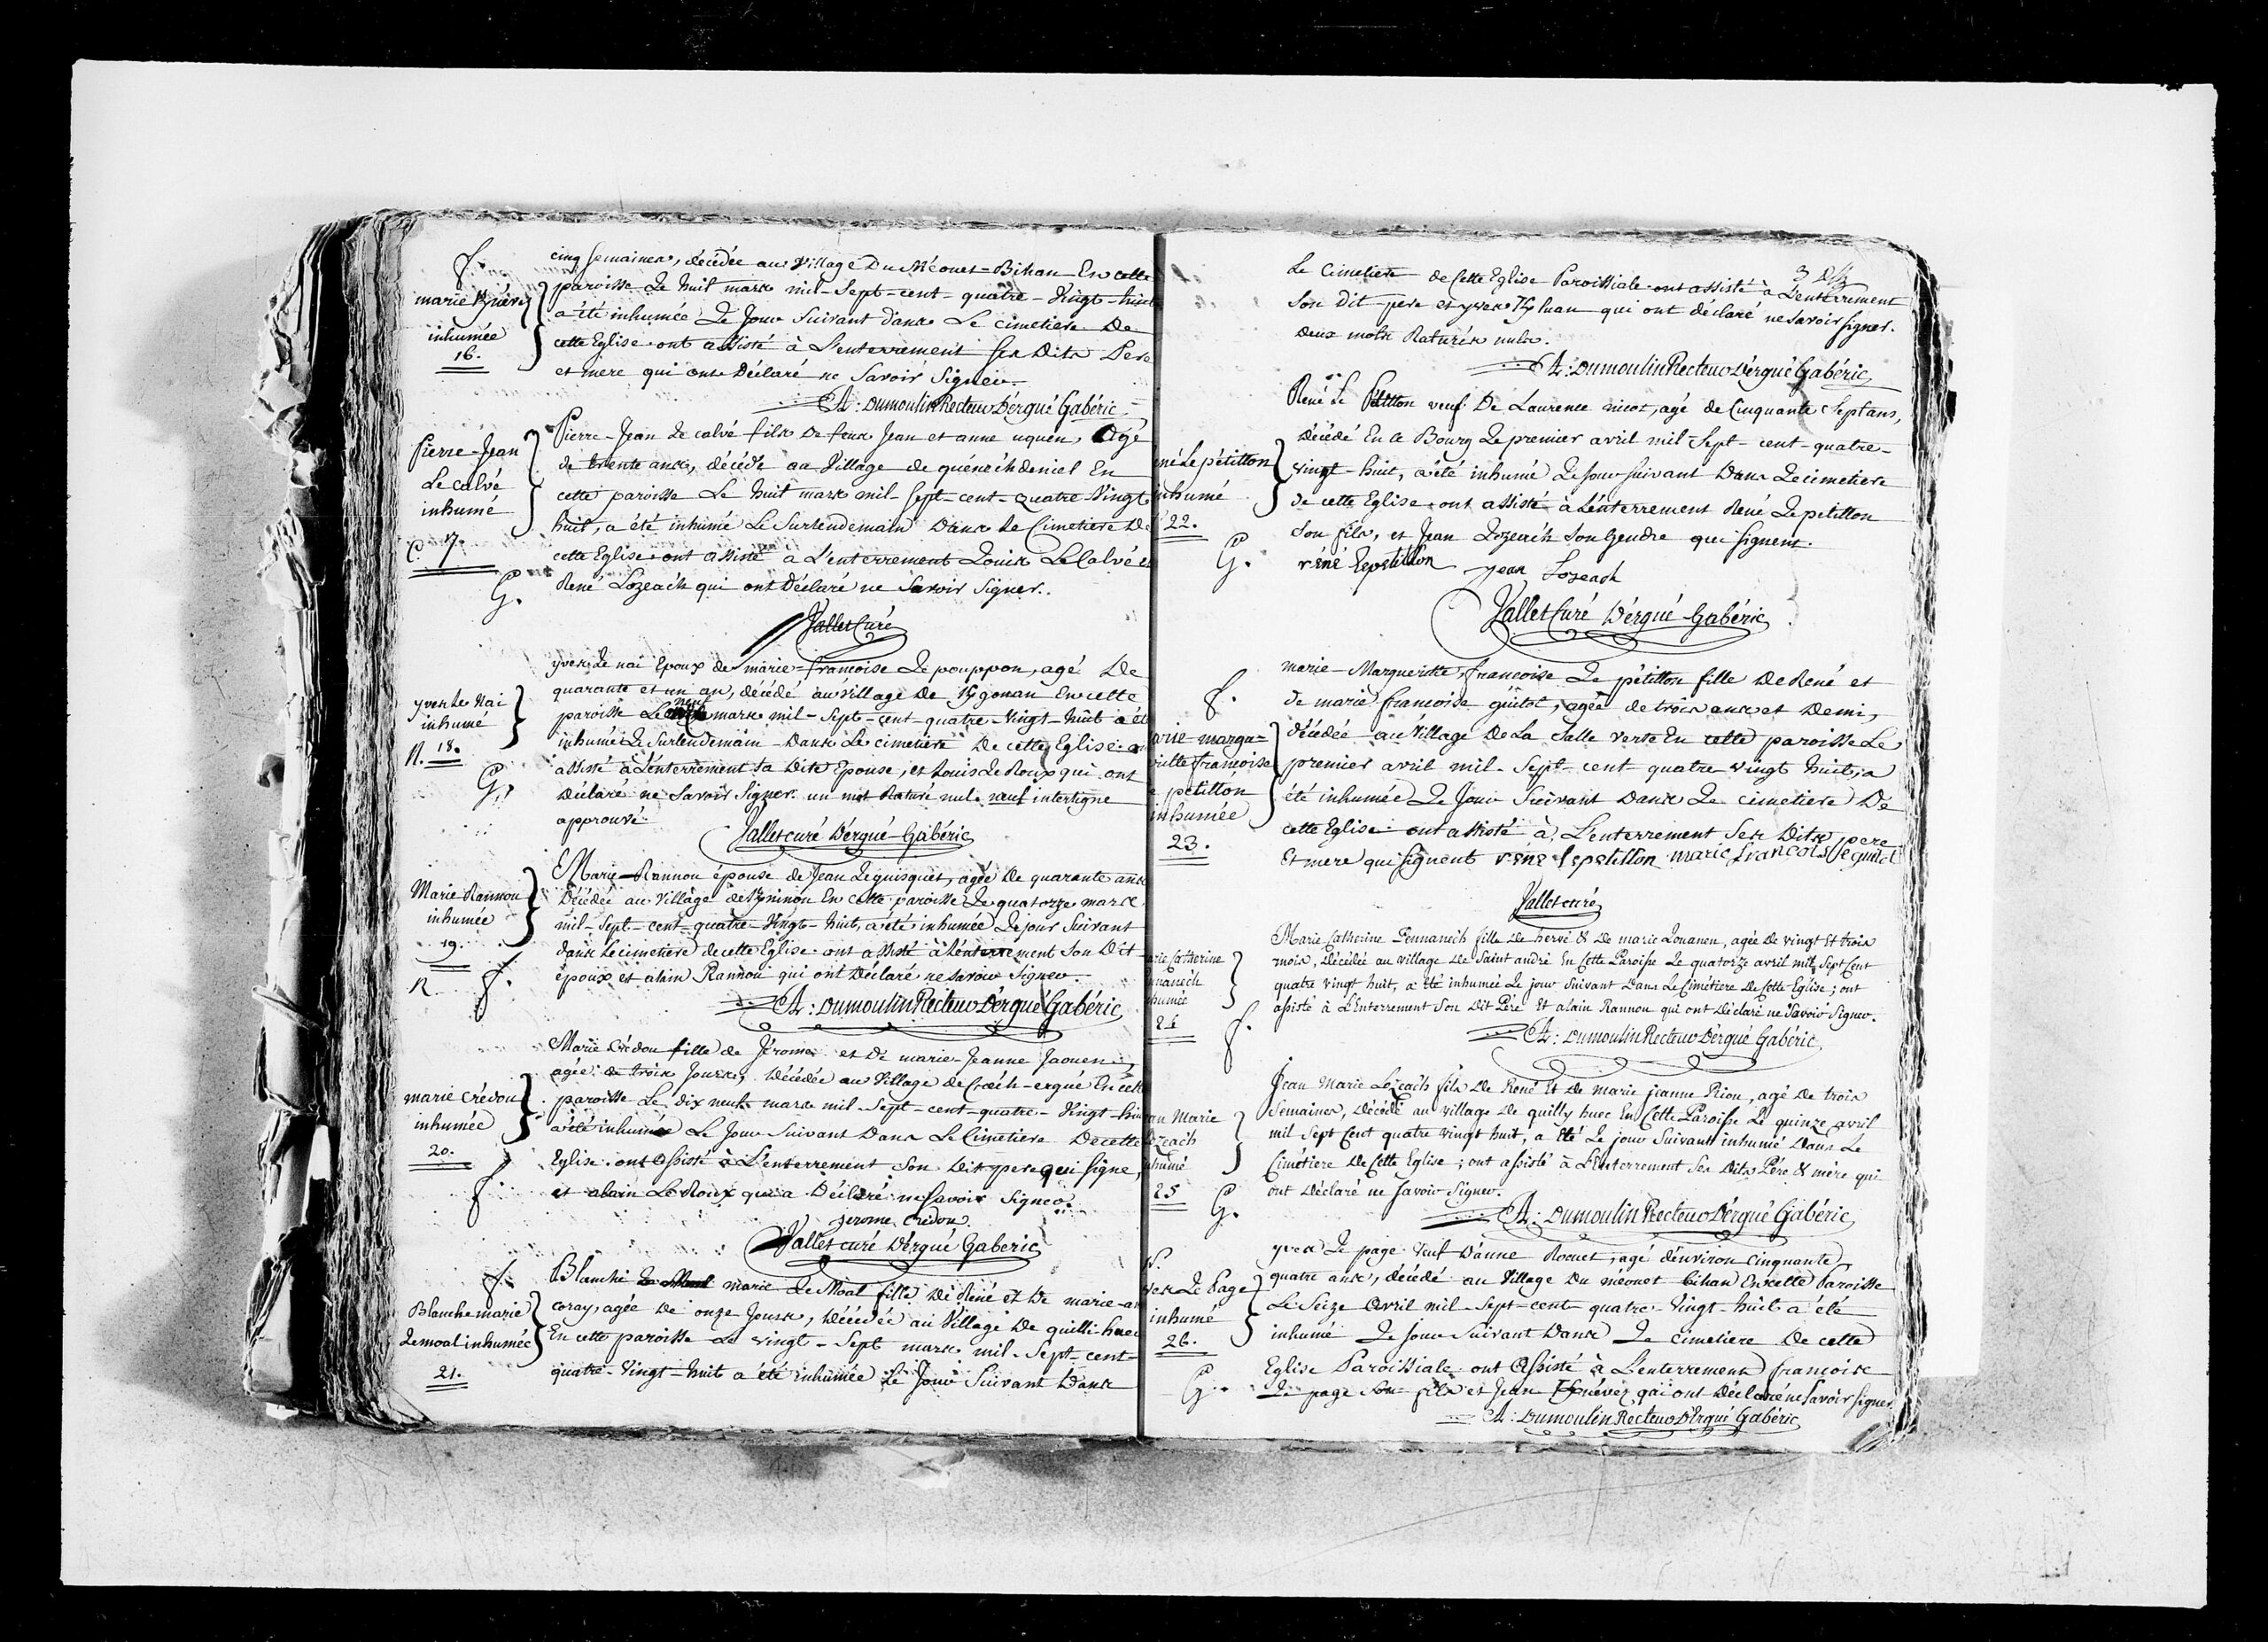 f.
marie
inhumée
16.
cinq semaines, décédée au village Du Méouet-Bihan En cette
paroisse Le huit mars mil-Sept-cent-quatre-Vingt-huit
a été inhumée Le Jour Suivant dans Le cimetiere De
cette Eglise. ont assisté à L'enterrement ses Dits Pere
et mere qui ont Déclaré ne Savoir Signer.
A: Dumoulin Recteur D'ergué Gabéric
Pierre-Jean
Le calvé
inhumé
C. 17.
G.
Pierre-Jean Le calvé fils De feux Jean et anne uguen, Agé
de trente ans, décédé au Village de quénéchdeniel En
cette paroisse Le huit mars mil Sept-cent-quatre Vingt
huit, a été inhumé Le Surlendemain Dans Le Cimetiere De
cette Eglise. ont assisté à L'enterrement Louis Le Calvé et
René Lozeach qui ont Déclaré ne Savoir Signer.
Vallet Curé
yves Le Nai
inhumé
N. 18.
G.
yves Le nai Epoux de marie-françoise Le pouppon, agé De
quarante et un an, décédé au Village de Kgonan En cette
neuf
paroisse Le mars mil-Sept-cent-quatre-Vingt-huit a été
inhumé Le Surlendemain Dans Le cimetiere De cette Eglise. ont
assisté à L'enterrement Sa Dite Epouse, et Louis Le Roux qui ont
Déclaré ne Savoir Signer. un mot Raturé nul. neuf interligne
approuvé
Vallet curé D'ergué-Gabéric
Marie Rannou
inhumée
19.
R f.
Marie-Rannou épouse de Jean Leguisquet, agée De quarante ans
Décédée au Village de Kninon En cette paroisse Le quatorze mars
mil-Sept-cent-quatre-Vingt-huit, a été inhumée Le jour Suivant
dans Le cimetiere de cette Eglise. ont assisté à L'enterrement Son Dit
époux et alain Rannou qui ont Déclaré ne savoir Signer.
A: Dumoulin Recteur D'ergué Gabéric
marie Crédou
inhumée
20.
f.
Marie Crédou fille de Jérome et De marie-Jeanne Jaouen,
agée de trois Jours, Décédée au Village de Creéch-ergué En cette
paroisse Le dix neuf mars mil Sept-cent-quatre-Vingt-huit
a été inhumée Le Jour Suivant Dans Le Cimetiere De cette
Eglise. ont assisté à L'enterrement Son Dit pere qui signe,
et alain Le Roux qui a Déclaré ne Savoir Signer.
jerome Credou
Vallet curé D'ergué Gaberic
f.
Blanche marie
Le moal inhumée
21.
Blanche Le Moal marie Le Moal fille De René et De marie-an
coray, agée De onze Jours, Décédée au Village De quilli-huec
En cette paroisse Le vingt-Sept mars mil-Sept-cent-
quatre-Vingt-huit a été inhumée Le Jour Suivant Dans
Le Cimetiere de Cette Eglise Paroissiale. ont assisté à L'enterrement
Son Dit pere et yves Kluan qui ont déclaré ne Savoir signer.
Deux mots Raturés nuls.
A: Dumoulin Recteur D'ergué Gabéric
né Le pétillon
inhumé
22.
G.
René Le Pétillon veuf De Laurence nicot, agé de Cinquante Sept ans,
Décédé En ce Bourg Le premier avril mil-Sept-cent-quatre-
vingt-huit, a été inhumé Le Jour Suivant Dans Le cimetiere
de cette Eglise. ont assisté à L'enterrement René Le petillon
Son fils, et Jean Lozeach Son Gendre qui Signent.
réné lepetillon jean Lozeach
Vallet Curé D'ergué-Gabéric
f.
arie margue-
ritte françoise
e pétillon
inhumée
23.
marie-Margueritte, françoise Le pétillon fille De René et
de marie françoise guitot, agée de trois ans et Demi,
décédée au Village De La Salle verte En cette paroisse Le
premier avril mil-Sept-cent-quatre-vingt huit, a
été inhumée Le Jour Suivant Dans Le cimetiere De
cette Eglise. ont assisté à L'enterrement Ses Dits pere
Et mere qui Signent réné lepetillon marie francois
Vallet curé
rie Catherine
nnanéch
humée
24
f.
Marie Catherine Pennanéch fille de hervé & De marie Louanen, agée De vingt Et trois
mois, Décédée au village De Saint andré En Cette Paroisse Le quatorze avril mil Sept Cent
quatre vingt huit, a été inhumée Le jour Suivant Dans Le Cimétiere De Cette Eglise; ont
assisté à L'Enterrement Son Dit Pére Et alain Rannou qui ont Déclaré ne Savoir Signer.
A: Dumoulin Recteur D'ergué Gabéric
an Marie
ozeach
humé
25
G.
Jean Marie Lozeach fils De René Et De Marie jeanne Riou, agé De trois
Semaines, Décédé au village De quilly huec En Cette Paroisse Le quinze avril
mil Sept Cent quatre vingt huit, a Eté Le jour Suivant inhumé Dans Le
Cimétiere De Cette Eglise; ont assisté à L'Enterrement Ses Dits Pére & mére qui
ont Déclaré ne Savoir Signer.
A: Dumoulin Recteur D'ergué Gabéric
ves Le Page
inhumé
26.
G.
yves Le page Veuf D'anne Rocuet, agé d'environ cinquante
quatre ans, décédé au Village Du méouet bihan En cette Paroisse
Le Seize Avril mil-Sept-cent-quatre-Vingt-huit a été
inhumé Le Jour Suivant Dans Le cimetiere De cette
Eglise Paroissiale. ont Assisté à L'enterrement françois
Le page Son fils et Jean Kguévez qui ont Déclaré ne Savoir signer
A: Dumoulin Recteur D'Ergué Gabéric